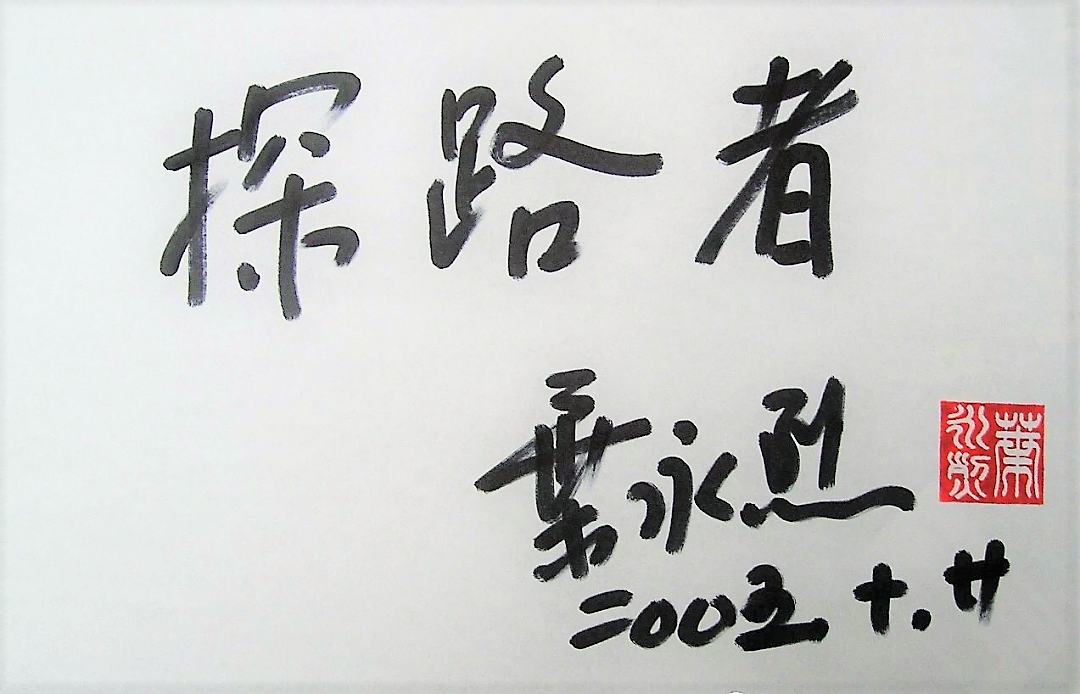 探路者
葉永烈
葉永烈
二00五 十.廿